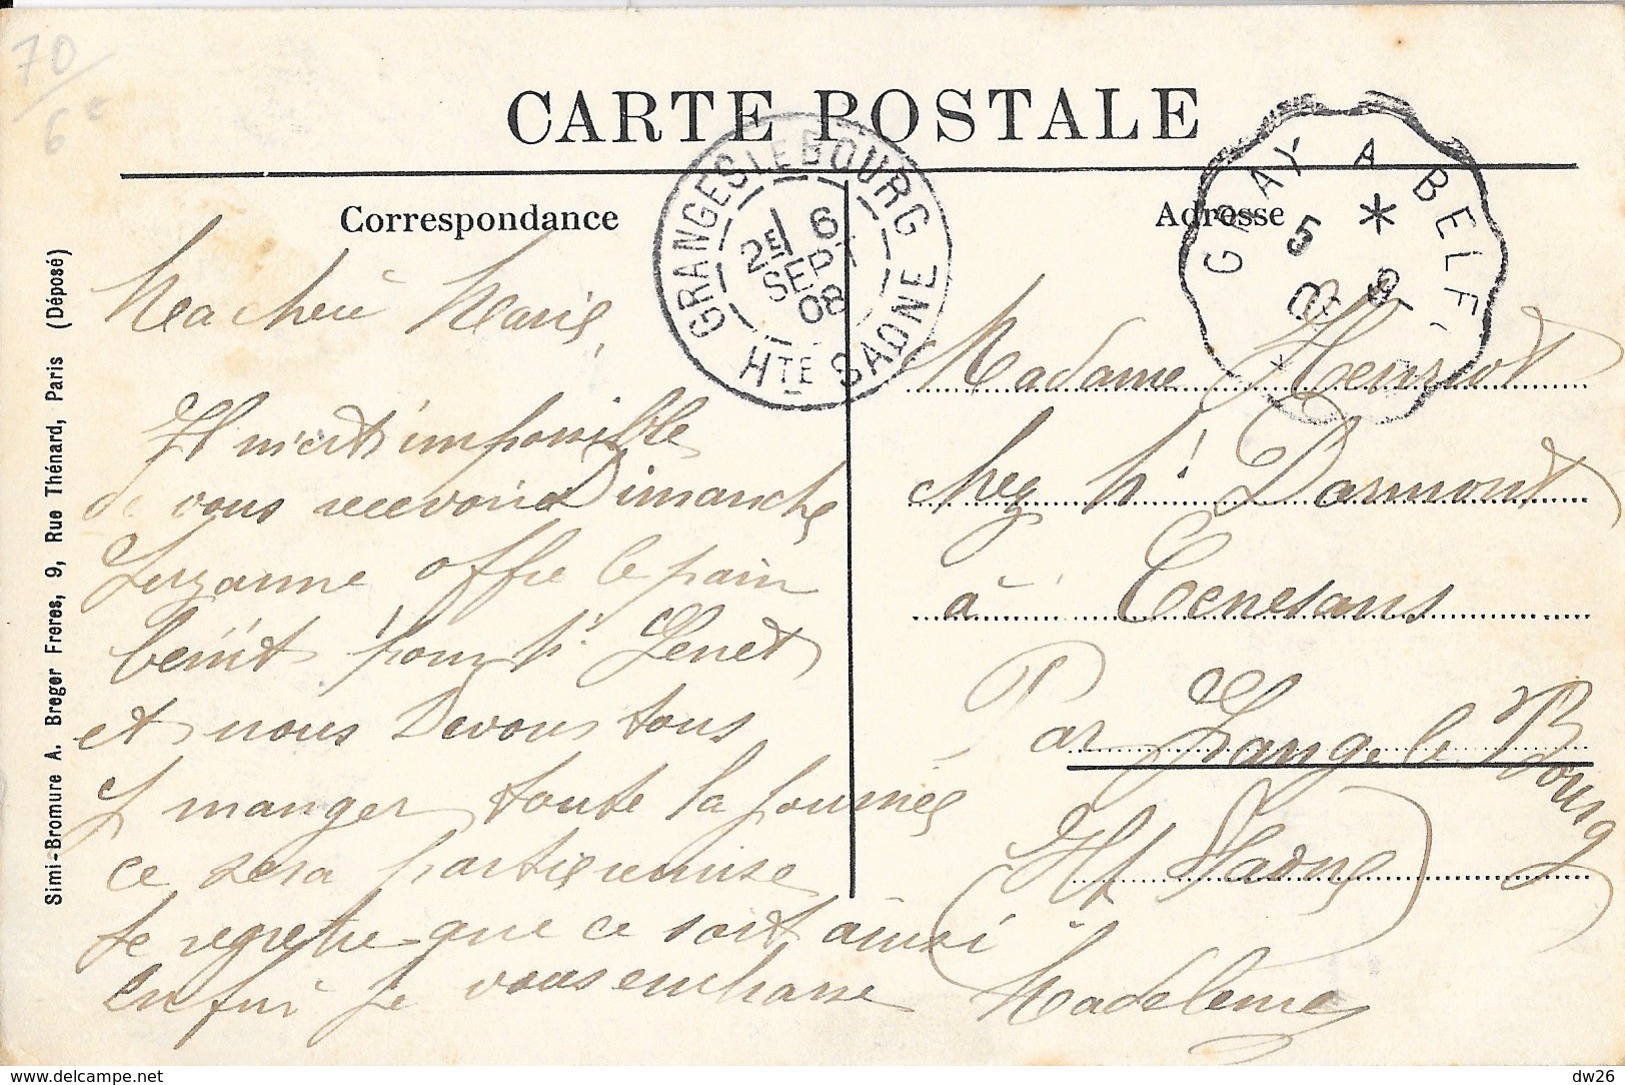 70
6€
CARTE POSTALE
Correspondance
Adresse
GRANGES LE BOURG
2E 6
SEPT
08
HTE SAONE
GRAY A BELF.
5
08
Simi-Bromure A. Breger Freres, 9, Rue Thénard, Paris (Déposé)
Ma cheré Marie,
Il m'est impossible
de vous recevoir Dimanche
Suzanne offre le pain
beniit pour Mr Genet
et nous devons tous
y manger toute la journée
ce sera partie remise
je regrette que ce soit ainsi
enfin je vous embrasse
Madeleine
Madame Henriot
chez Mr Darmont
à Cenesans
Par Grange le Bourg
Hte Saone
dw26